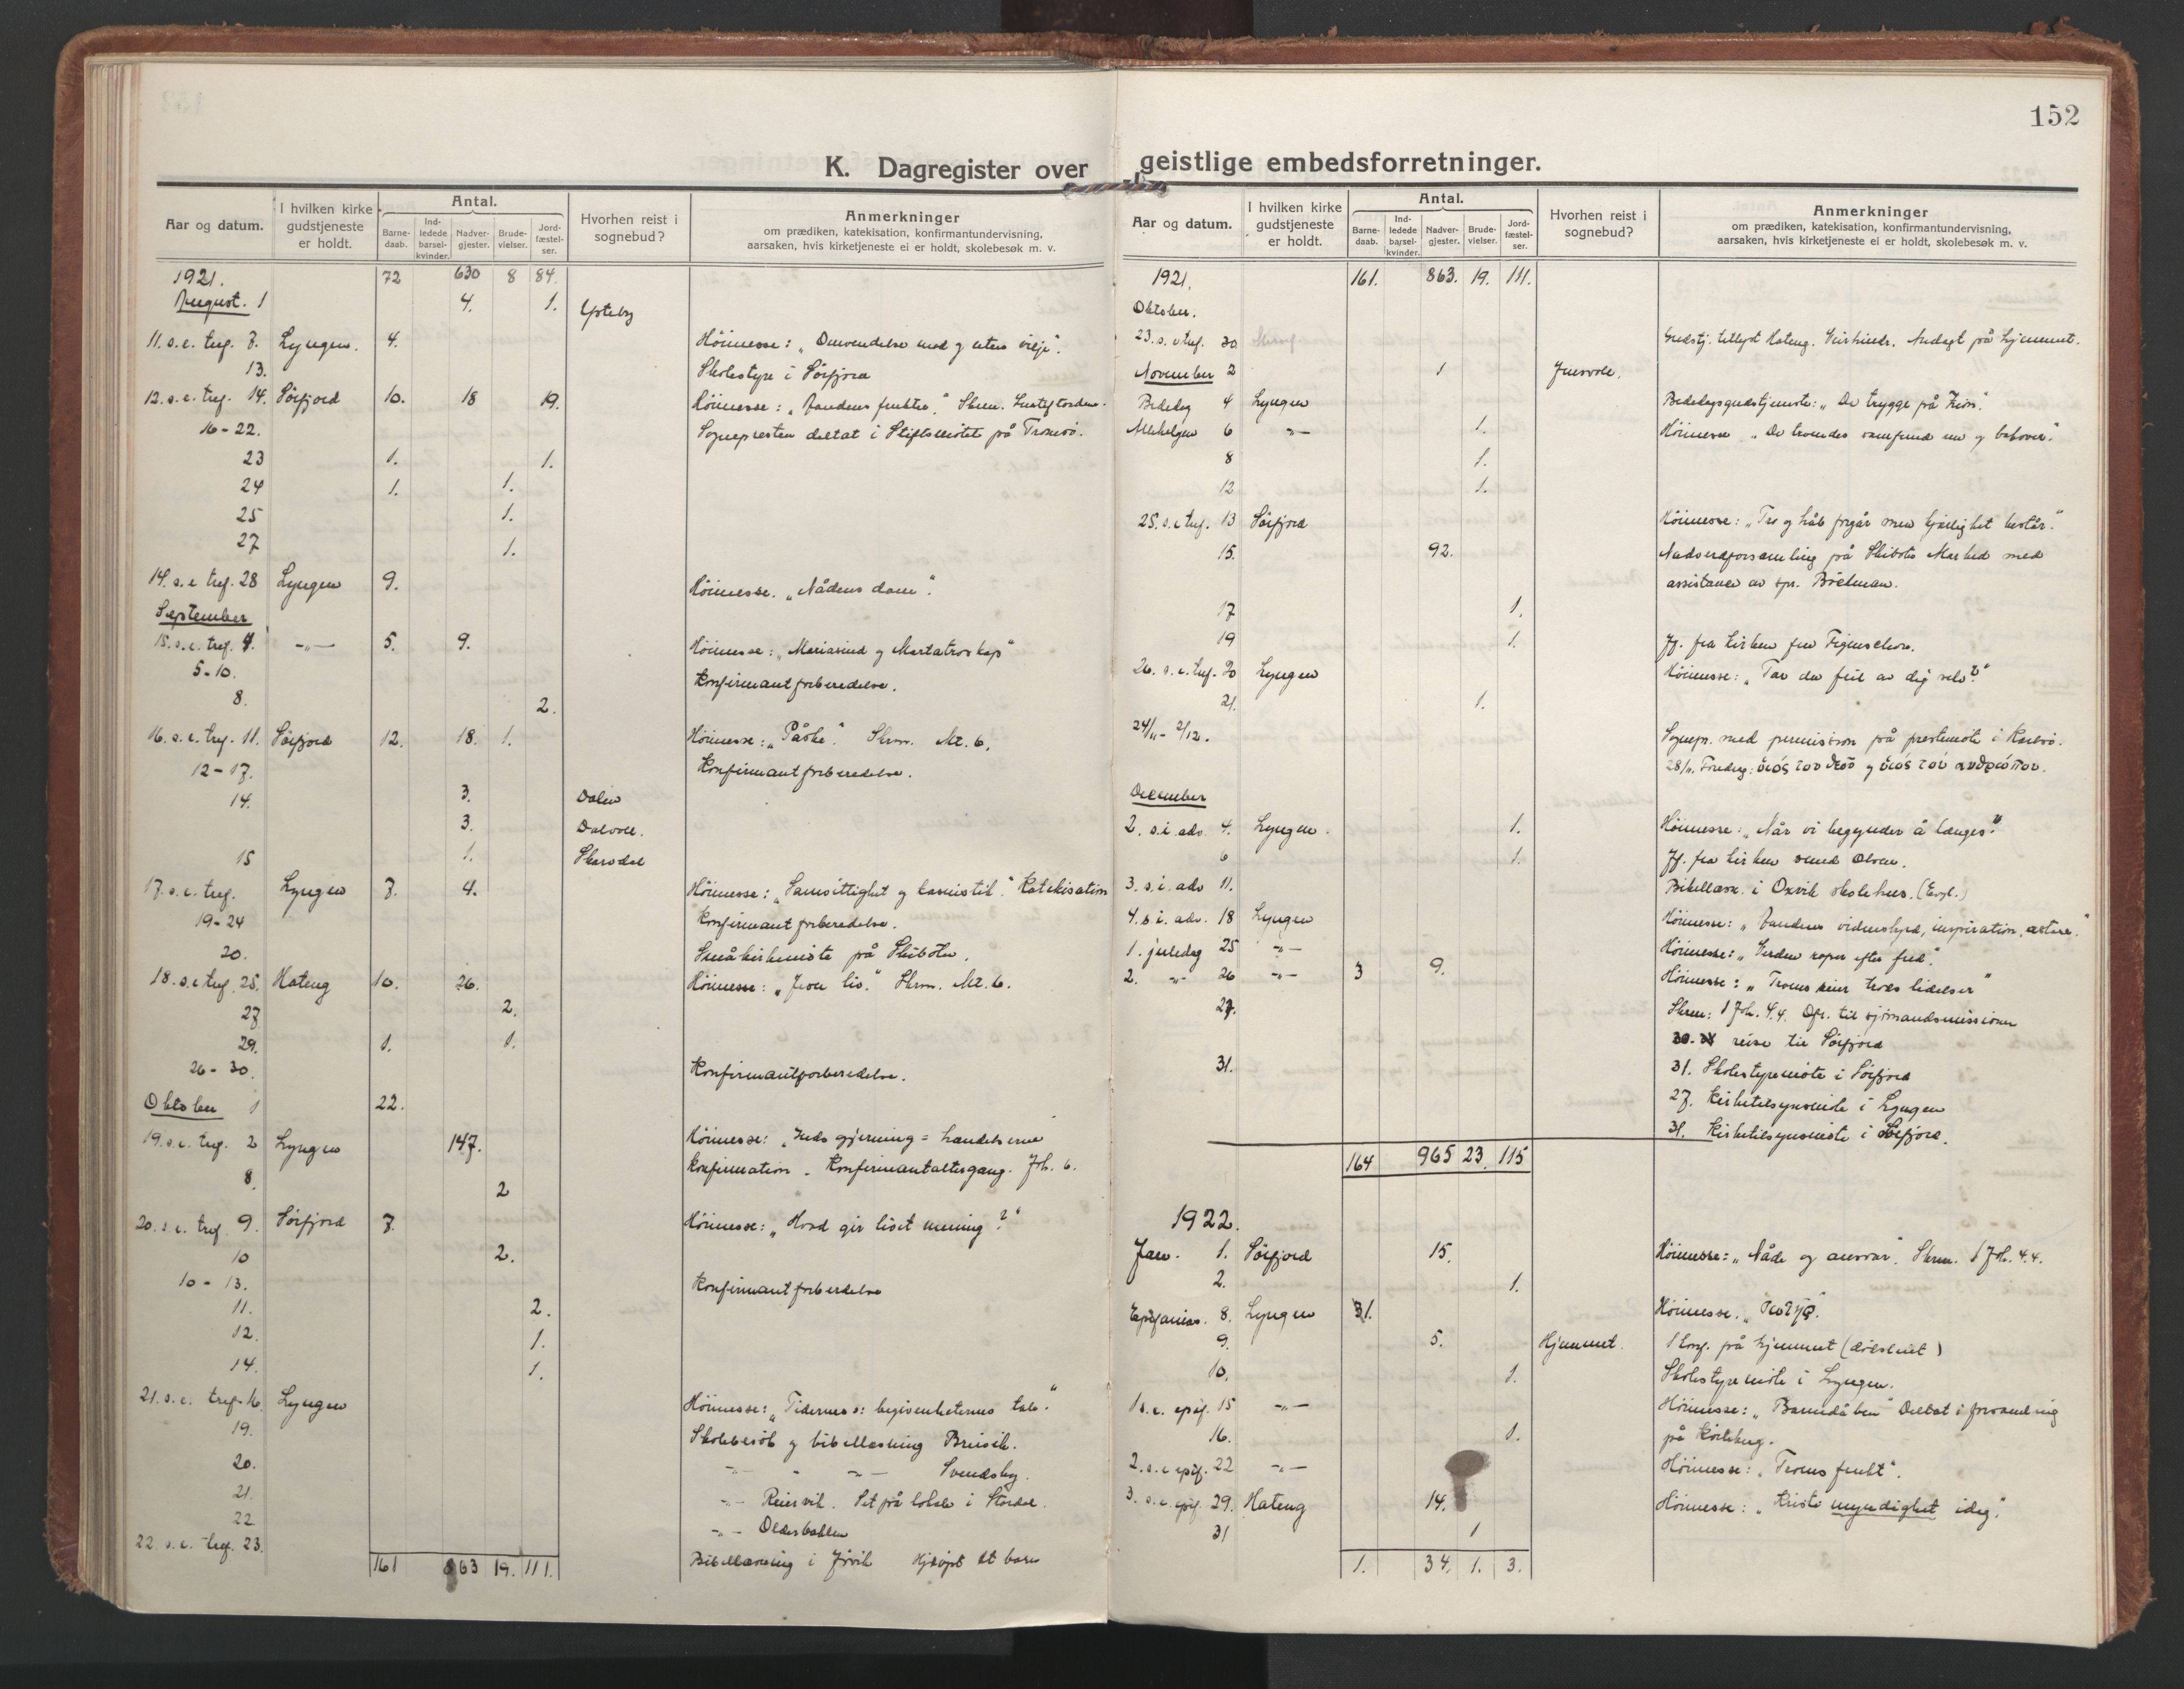 152
K. Dagregister over geistlige embedsforretninger.
Aar og datum. I hvilken kirke gudstjeneste er holdt. Antal. Barne-daab. Ind-ledede barsel-kvinder. Nadver-gjester. Brude-vielser. Jord-fæstel-ser. Hvorhen reist i sognebud? Anmerkninger om prædiken, katekisation, konfirmantundervisning, aarsaken, hvis kirketjeneste ei er holdt, skolebesøk m. v.
1921. 72 630 8 84.
August. 1 4. 1.
11. s. e. tref. 7. Lyngen. 4. Höimesse: „Omvendelse mod og uten vilje".
13. Skolestyre i Sörfjord
12. s. e. tref. 14. Sörfjord 10. 18 19. Höimesse: „Aandens frukter." Skrm.
16-22. Sognepresten deltat i Stiftsmötet på Tromsö.
23 1. 1.
24 1. 1.
25 1.
27 1.
14. s. e. tref. 28 Lyngen 9. Höimesse. „Nådens dom".
September
15. s. e. tref. 4. -"- 5. 9. Höimesse: „Mariasind og Martatroskap"
5-10. Konfirmantforberedelse.
8. 2.
16. s. e. tref. 11. Sörfjord 12. 18. 1. Höimesse: „Påske". Skrm. Mt. 6.
12-17. Konfirmantforberedelse.
14. 3. Dalen
3. Dalvoll.
15 1. Skarsdal
17. s. e. tref. Lyngen 7. 4. Höimesse: „Samvittighet og kasuistik." Katekisation
19-24 Konfirmantforberedelse.
20. Småkirkemöte på Skibotn.
18. s. e. tref. 25. Hateng 10. 26. Höimesse: „ liv." Skrm. Mt. 6.
27 2.
29. 1. 1.
26-30. Konfirmantforberedelse.
Oktober 1 22.
19. s. e. tref. 2 Lyngen 147. Höimesse: „Guds gjerning = haandelserne
Konfirmation. Konfirmantaltergang. Joh. 6.
8. 2
20. s. e. tref. 9. Sörfjord 7. Höimesse: „Hvad gir livet mening?"
10 2.
10-13. Konfirmantforberdelse
11. 2.
12. 1.
14. 1.
21. s. e. tref. 16. Lyngen Höimesse: „Tidernes: begivenheternes tale."
19. Skolebesök og bibellæsning
20. -"- " -"- Svendsby.
21. -"- Reiervik. Set på lokale i Stordal.
22 -"- Olderbakken
22. s. e. tref. 23. Bibellæsning i Jövik Hjdöpt et barn
161 863 19. 111.
Aar og datum. I hvilken kirke gudstjeneste er holdt. Antal. Barne-daab. Ind-ledede barsel-kvinder. Nadver-gjester. Brude-vielser. Jord-fæstel-ser. Hvorhen reist i sognebud? Anmerkninger om prædiken, katekisation, konfirmantundervisning, aarsaken, hvis kirketjeneste ei er holdt, skolebesøk m. v.
1921. 161. 863. 19. 111.
Oktober.
23. s. e. tref. 30 Gudstj. tillyst Hateng. Veirhindr. Andagt på hjemmet.
November 2 1
Bededag 4 Lyngen Bededagsgudstjeneste: „De trygge på Zion".
Allehelgen 6 -"- 1. Höimesse „De troendes samfund nu og behover."
8 1.
12 1.
25. s. e. tref. 13 Sörfjord Höimesse: „Tro og håb forgår men kjærlighet består."
15. 92. Nadverdforsamling på Skibotn Marked med
assistance av spr. Böckman.
17 1.
19 1. Jf. fra kirken fru Figenschou.
26. s. e. tref. 20 Lyngen Höimesse: „Tar du feil av dig selv?"
21. 1.
24/11 - 2/12. Sognepr. med permission på prestemöte i Karlsö.
28/11. Foredrag: υιός του θεου og υιός του ανθρώπου.
December
2. s. i. adv. 4. Lyngen. 1. Höimesse: „Når vi begynder å længes."
6 1. Jf. fra kirken Olsen.
3. s. i. adv 11. Bibellæsn. i Oxvik skolehus. (Evgl.)
4. s. i. adv. 18 Lyngen Höimesse: „Aandens vidnesbyrd, inspiration,
1. juledag 25 -"- Höimesse: „Verden roper efter fred".
2. -"- 26 -"- 3 9. Höimesse: „Troens seier trods lidelser"
27. Skrm: 1 Joh. 4.4. Ofr. til sjömandsmissionen
30. reise til Sörfjord
31. 31. Skolestyremöte i Sörfjord
27. Kirketilsynsmöte i Lyngen
31. Kirketilsynsmöte i Sörfjord.
164 965 23. 115
1922.
Jan. 1. Sörfjord 15. Höimesse: „Nåde og ansvar". Skrm. 1 Joh. 4.4.
2. 1.
Epifanias. 8. Lyngen 1. Höimesse.
9. 5. Hjemmet. 1 konf. på hjemmet (dövstum)
10. 1. Skolestyremöte i Lyngen.
1 s. e. epif. 15 -"- Höimesse: „Barnedåben" Deltat i forsamling
16. 1. på
2. s. e. epif. 22 -"- Höimesse: „Troens frukt".
3. s. e. epif. 29. Hateng 14. Höimesse: „Kristi myndighet idag".
31 1
1. 34. 1. 3.